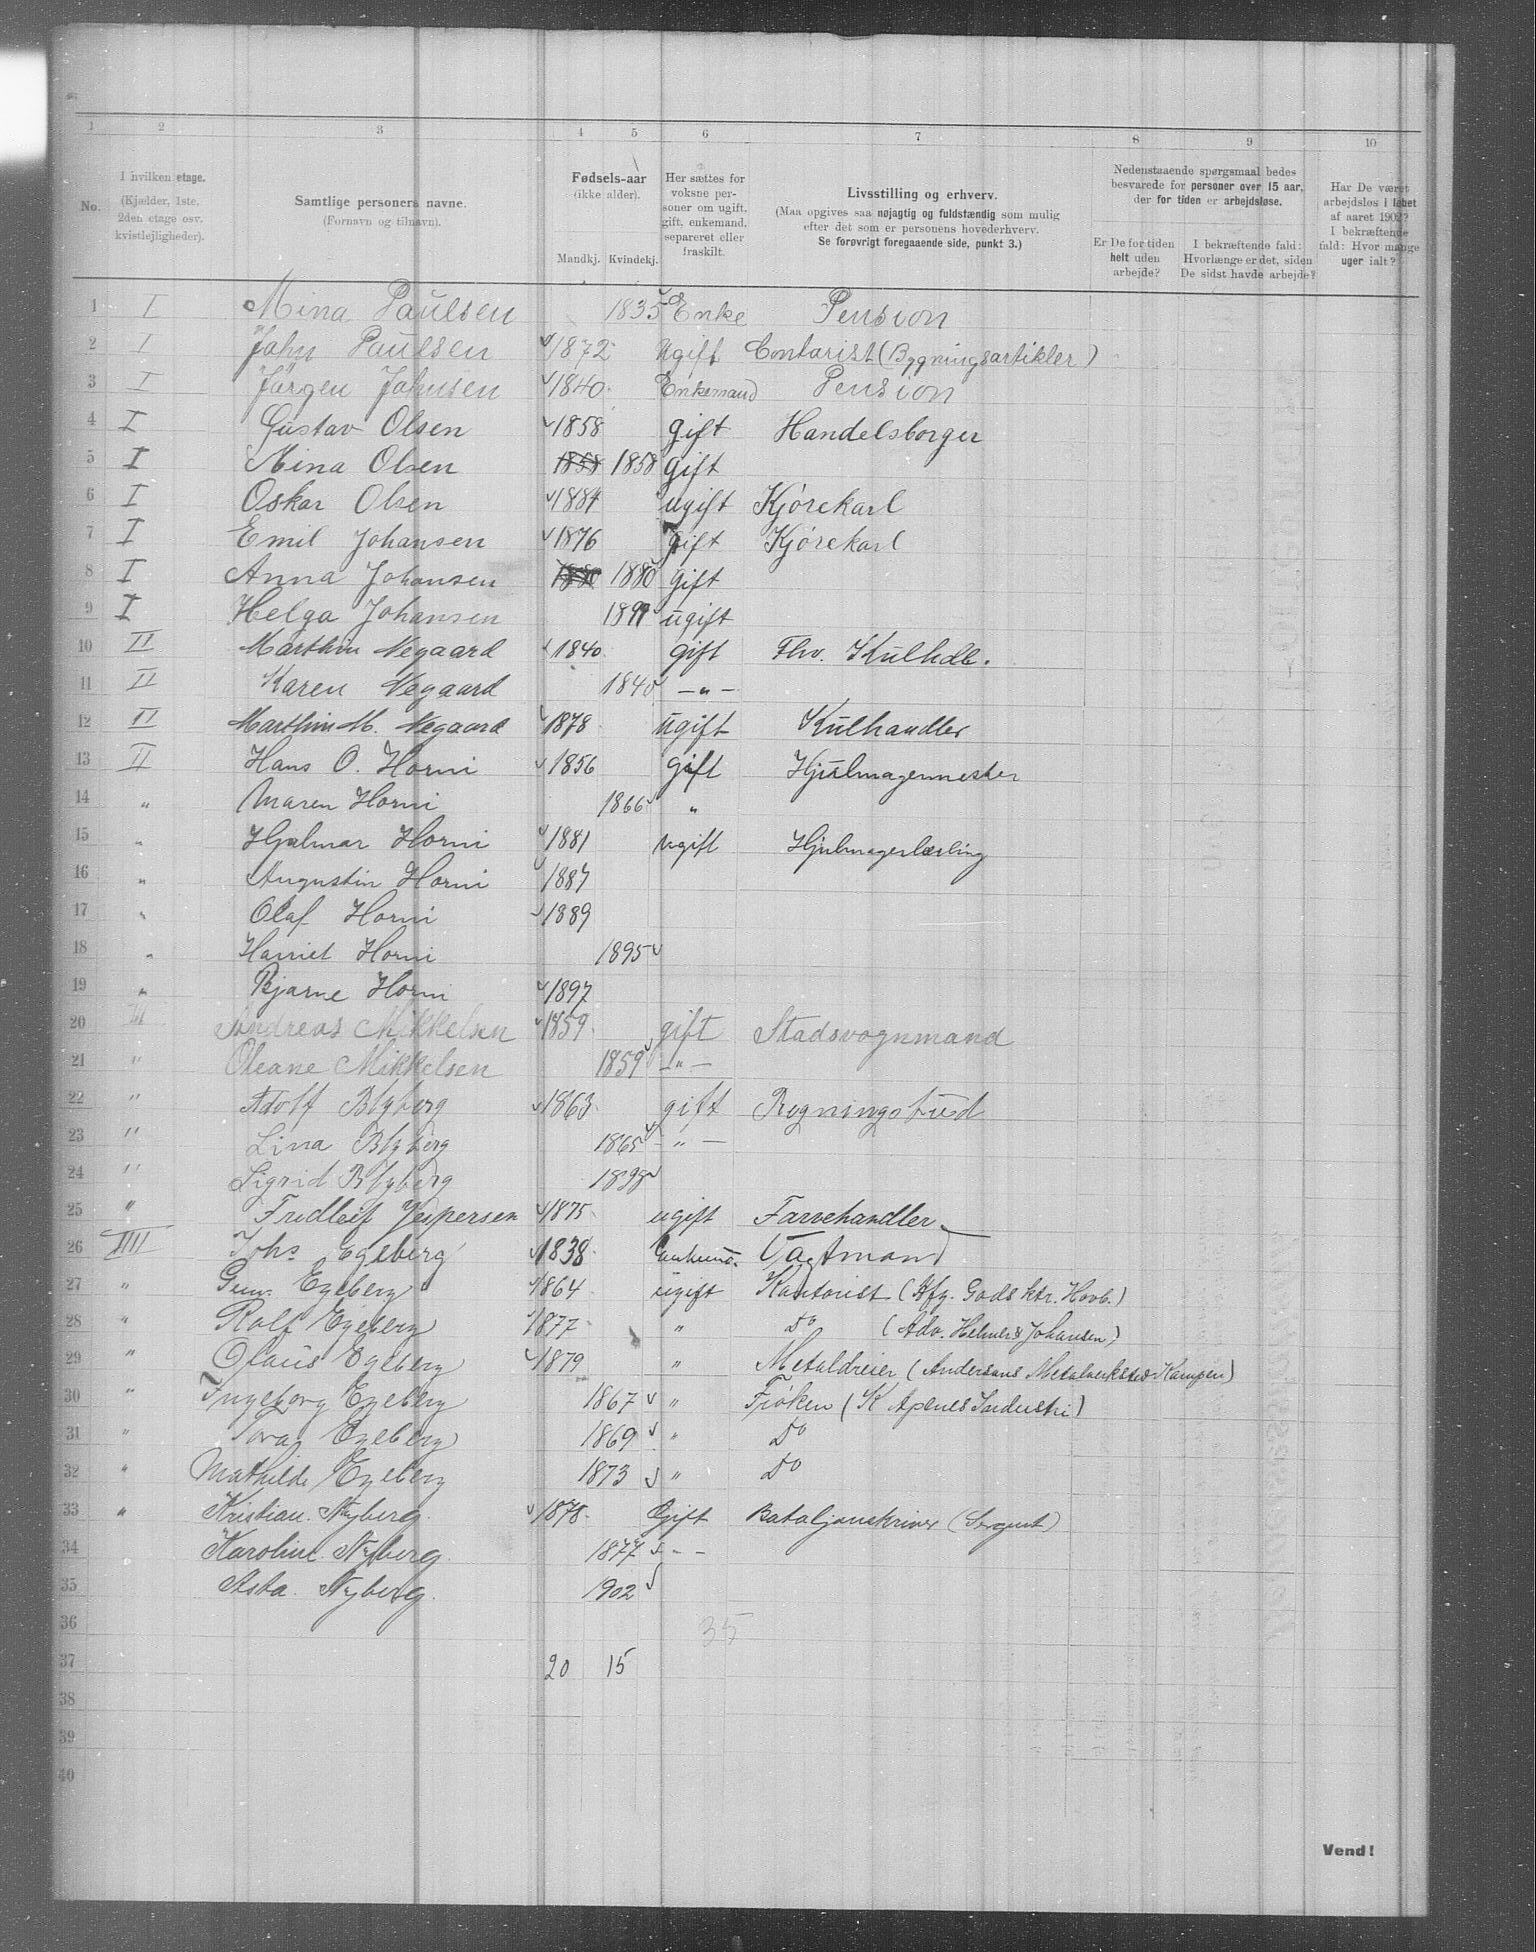 1 2 3 4 5 6 7 8 9 10
No.
I hvilken etage. (Kjælder, 1ste, 2den etage osv. kvistlejligheder).
Samtlige personers navne. (Fornavn og tilnavn).
Fødsels-aar (ikke alder). Mandkj. Kvindekj.
Her sættes for voksne personer om ugift, gift, enkemand, separeret eller fraskilt.
Livsstilling og erhverv. (Maa opgives saa nøjagtig og fuldstændig som mulig efter det som er personens hovederhverv. Se forøvrigt foregaaende side, punkt 3.)
Nedenstaaende spørgsmaal bedes besvarede for personer over 15 aar, der for tiden er arbejdsløse.
Er De for tiden helt uden arbejde?
I bekræftende fald: Hvorlænge er det, siden De sidst havde arbejde?
Har De været arbejdsløs i løbet af aaret 1902? I bekræftende fald: Hvor mange uger ialt?
1 I Mina Paulsen 1835 Enke Pension
2 I John Paulsen 1872 Ugift Contorist (Bygningsartikler)
3 I Jörgen Johnsen 1840 Enkemand Pension
4 I Gustav Olsen 1858 gift Handelsborger
5 I Mina Olsen 1858 1858 gift
6 I Oskar Olsen 1884 ugift Kjørekarl
7 I Emil Johansen 1876 gift Kjørekarl
8 I Anna Johansen 1880 1880 gift
9 I Helga Johansen 1899 ugift
10 II Marthin Negaard 1840 gift Fhv. Kulhdl.
11 II Karen Negaard 1840 — " —
12 II Marthin M. Negaard 1878 ugift Kulhandler
13 II Hans O. Horni 1856 gift Hjulmagermester
14 " Maren Horni 1866 "
15 " Hjalmar Horni 1881 ugift Hjulmagerlærling
16 " Augustin Horni 1887
17 " Olaf Horni 1889
18 " Harriet Horni 1895
19 " Bjarne Horni 1897
20 III Andreas Mikkelsen 1859 gift Stadsvognmand
21 " Oleane Mikkelsen 1859 — " —
22 " Adolf Blyberg 1863 gift Regningsbud
23 " Lina Blyberg 1865 — " —
24 " Sigrid Blyberg 1898
25 " Fredleif Jespersen 1875 ugift Farvehandler
26 IIII Johs Egeberg 1838 Vagtmand
27 " Gun. Egeberg 1864 ugift Kontorist (Kfg. Gods ktr. Hovb.)
28 " Rolf Egeberg 1877 " Do (Adv. Helmer & Johansen)
29 " Olaus Egeberg 1879 " Metaldreier (Andersens Metalverksted Kampen)
30 " Ingeborg Egeberg 1867 " Frøken (K Apenes Industri)
31 " Egeberg 1869 " Do
32 " Mathilde Egeberg 1873 " Do
33 " Kristian Nyberg 1878 Gift Bataljonskriver (Sergent)
34 Karoline Nyberg 1877 - " -
35 Asta Nyberg 1902
36 35
37 20 15
38
39
40
Vend!